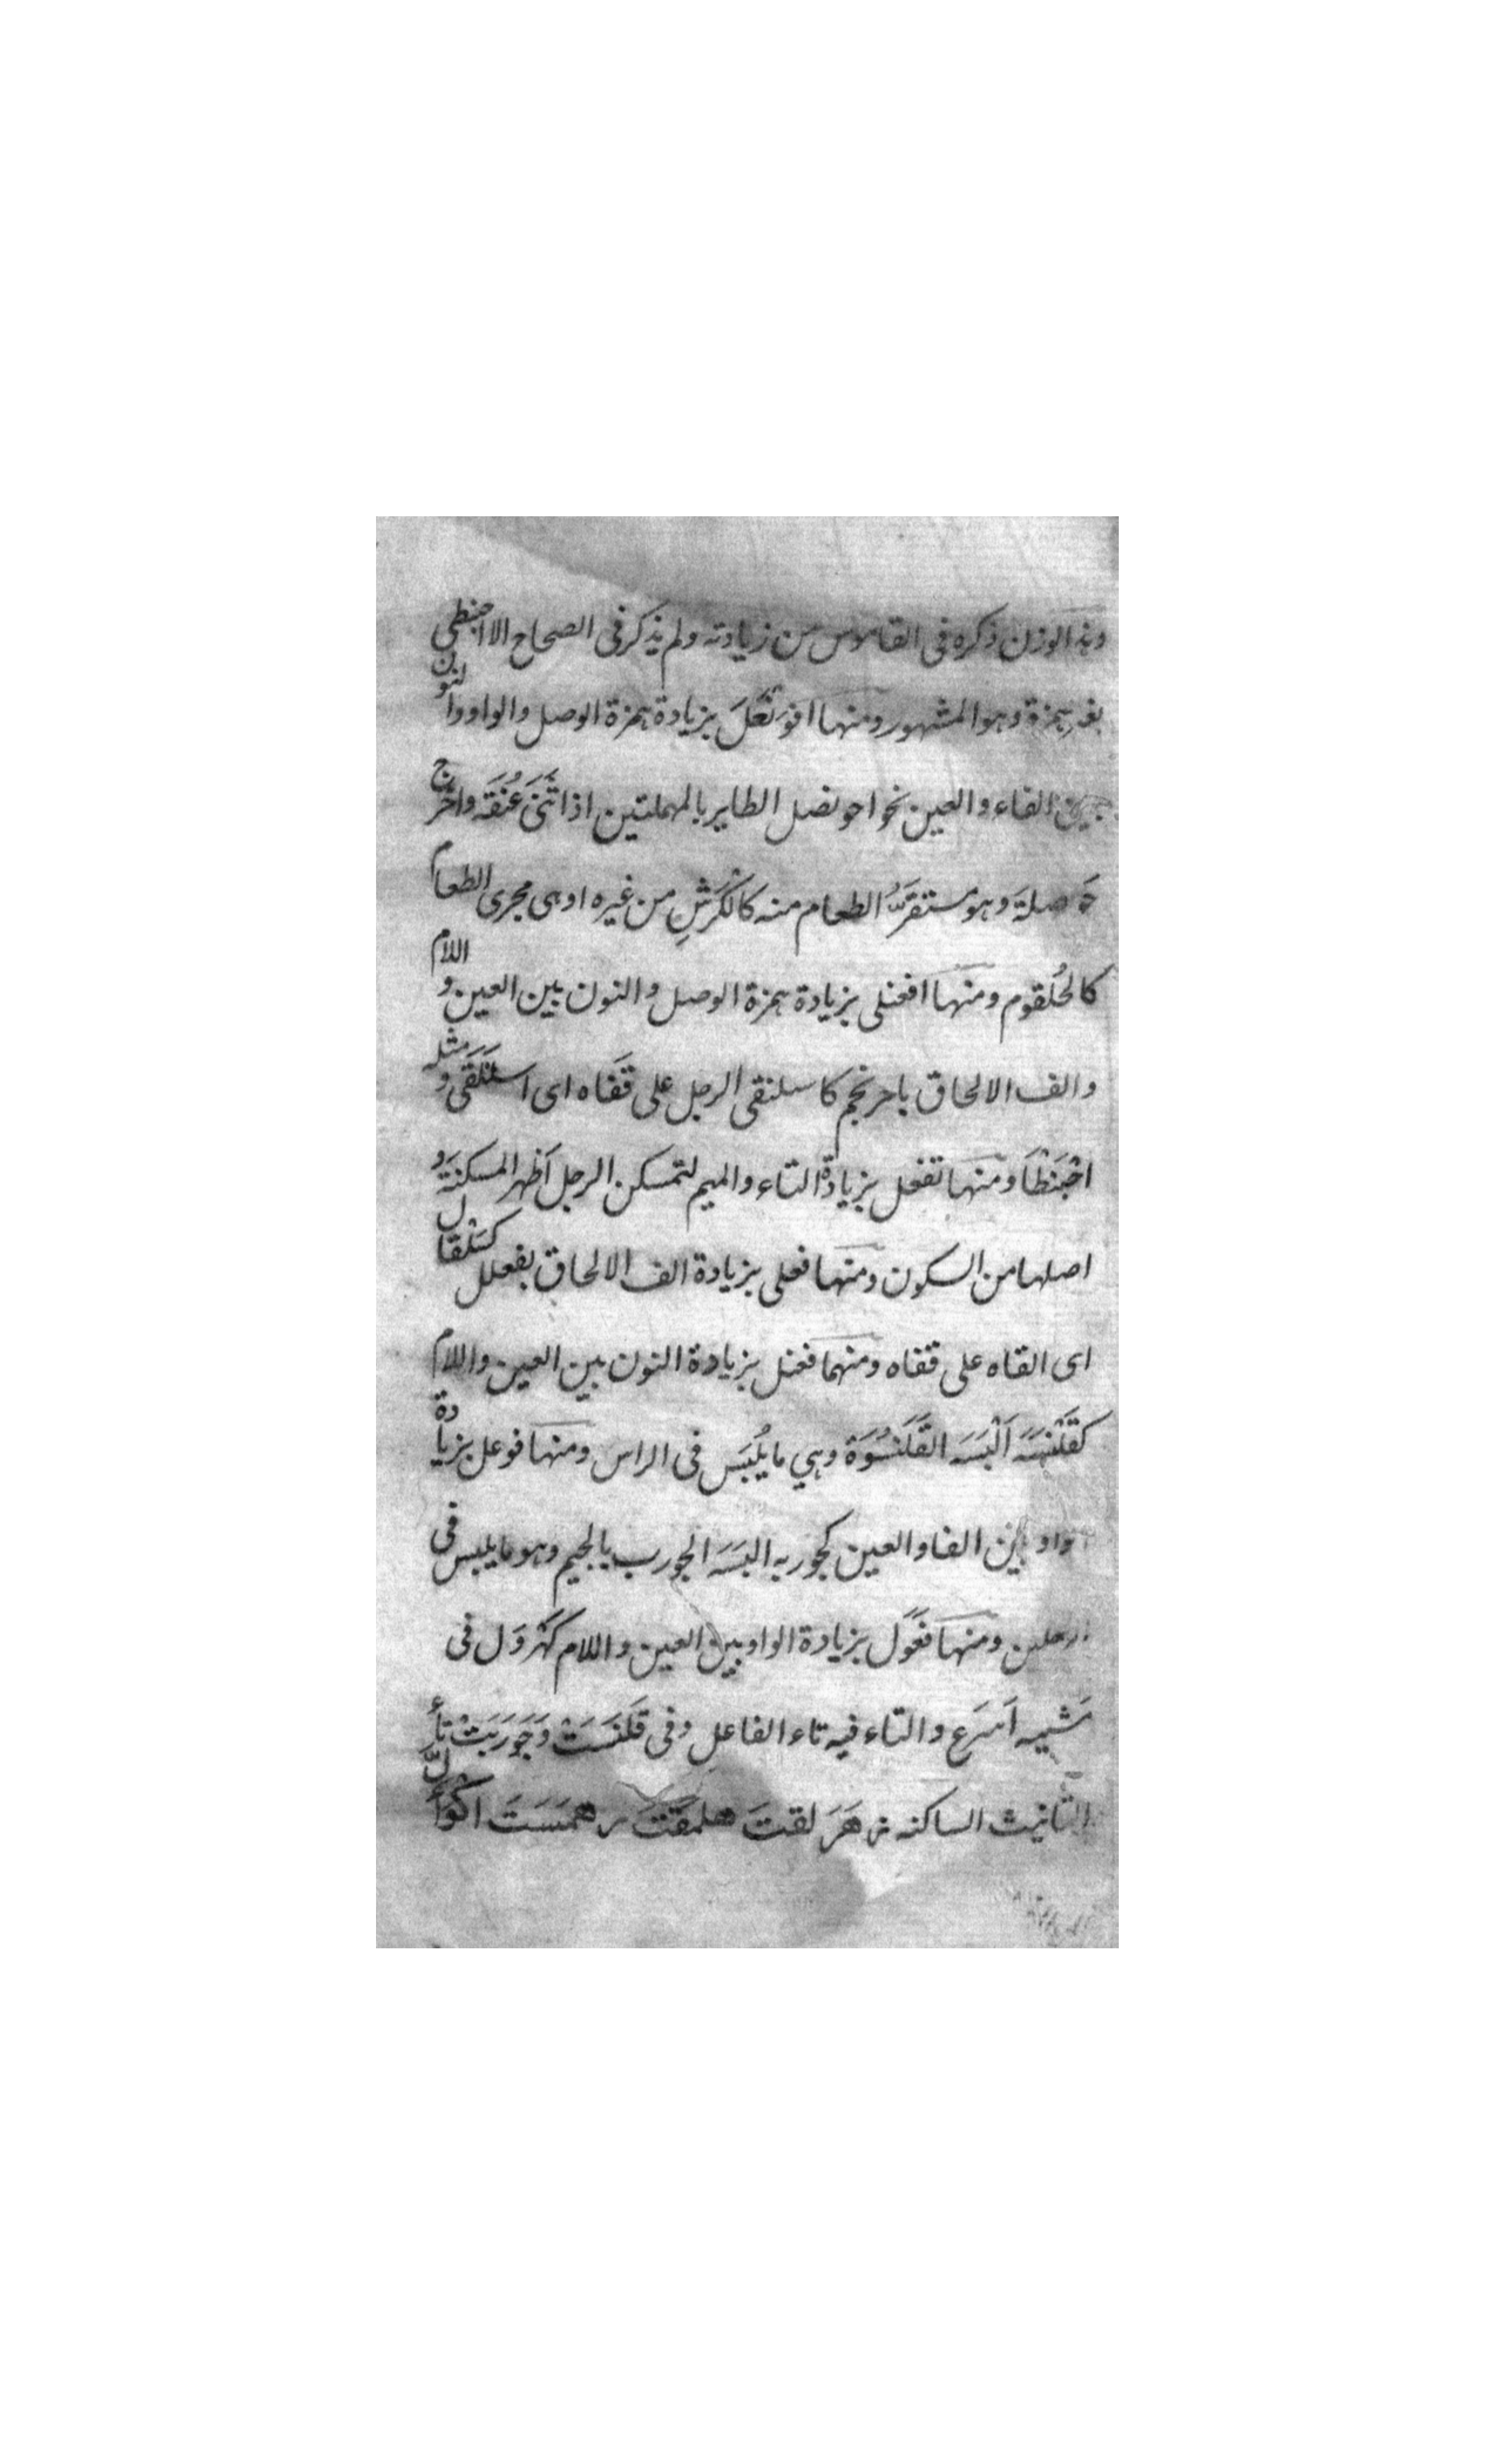 وهذا الوزن ذكره فى القاموس من زيادته ولم يذكر فى الصحاح الا احبنطى
بغير همزة وهو المشهور ومنها افوَنْعَلَ بزيادة همزة الوصل والواو والنون
بين الفاء والعين نحو احونصل الطاير بالمهملتين اذا ثَنَى عُنُقَه واخرج
حَوصلة وهو مستقَرُّ الطعام منه كالكَرْشِ من غيره او هى مجرى الطعام
كالحُلقوم ومنها افعنلى بزيادة همزة الوصل والنون بين العين و اللام
والف الالحاق باحرنجم كاسلنقى الرجل على قَفَاه اى استَلقَى ومثله
احْبَنْطَاَ ومنها تمفعل بزيادة التاء والميم لتمسكن الرجل اَظهر المسكنةَ و
اصلها من السكون ومنها فعلى بزيادة الف الالحاق بفعلل كسَلْقا ل
اى القاه على قفاه ومنها فعنل بزيادة النون بين العين واللام
كقَلْنسَه اَلْبَسَه القَلَنْسُوَة وهي ما يُلْبَس فى الراس ومنها فوعل بزيادة
واو بين الفا والعين كجوربه البَسَه الجورب بالجيم وهو ما يلبس فى
الرجلين ومنها فَعْوَل بزيادة الواو بين العين واللام كهَرْوَل فى
مَشيه اَسرَع والتاء فيه تاء الفاعل وفى قَلنَسَتْ وَجَوْرَبَتْ تاء
التانيث الساكنه هَرَ لقتَ هلمقَتَ رهمَسَتَ اكْوَأَلَّ